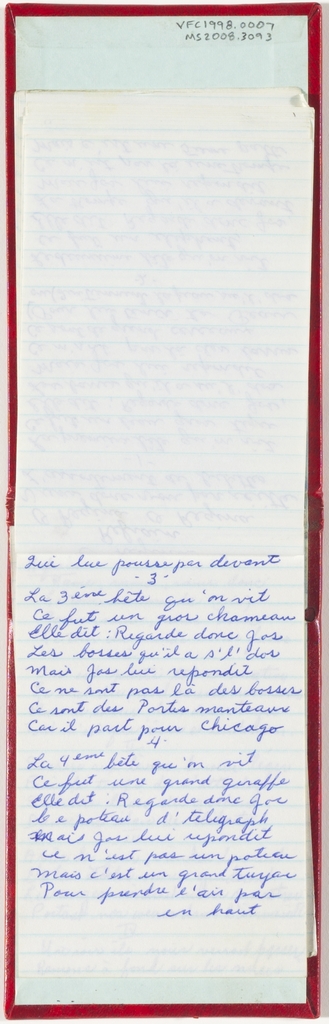 VFC1998.0007
MS2008.3093
Qui lue pousse par devant
-3-
La 3ème bête qu'on vit
Ce fut un gros chameau
Elle dit : Regarde donc Jos
Les bosses qu'il a s'l' dos
Mais Jos lui repondit
Ce ne sont pas là des bosses
Ce sont des Portes manteaux
Car il part pour Chicago
4.
La 4eme bête qu'on vit
Ce fut une grand giraffe
Elle dit : Regarde donc Joe
le poteau d'telegraph
Mais Jos lui repondit
ce n'est pas un poteau
Mais c'est un grand tuyau
Pour prendre l'air par
en haut